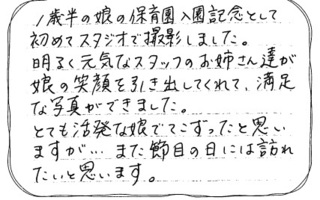 1歳半の娘の保育園入園記念として
初めてスタジオで撮影しました。
明るく元気なスタッフのお姉さん達が
娘の笑顔を引き出してくれて、満足
な写真ができました。
とても活発な娘でてこずったと思い
ますが… また節目の日には訪れ
たいと思います。